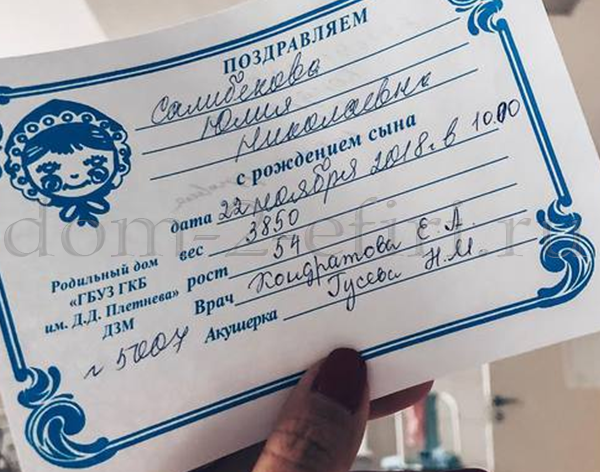 ПОЗДРАВЛЯЕМ
Салибекова
Юлия
Николаевна
с рождением сына
дата 22 ноября 2018 г в 10.00
вес 3850
рост 54
Врач Кондратова Е. А.
Акушерка Гусева Н.М
Родильный дом
«ГБУЗ ГКБ
им. Д.Д. Плетнева»
ДЗМ
5007
dom-2-efiri.ru